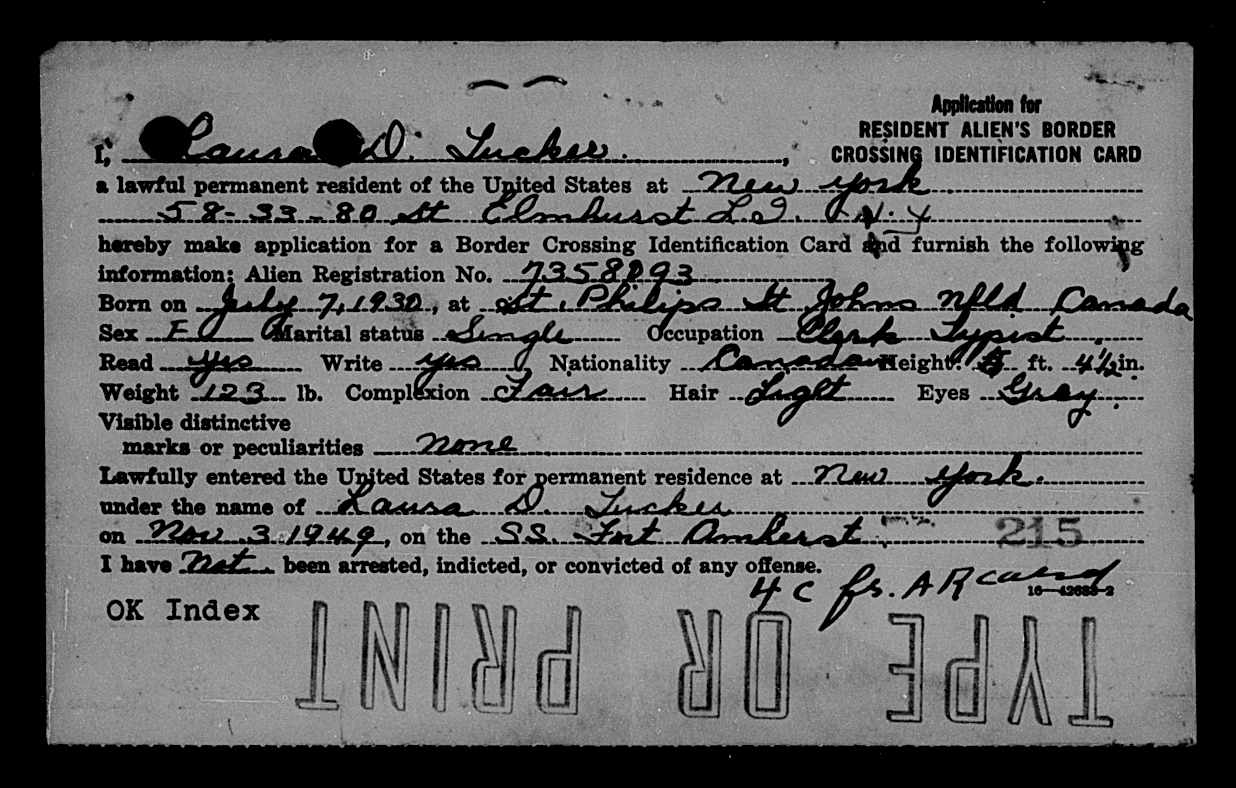 Application for
RESIDENT ALIEN'S BORDER
CROSSING IDENTIFICATION CARD
I, Laura D. Tucker.,
a lawful permanent resident of the United States at New York
58-33-80 St Elmhurst L.I. N.Y
hereby make application for a Border Crossing Identification Card and furnish the following
information: Alien Registration No. 7358093
Born on July 7, 1930, at St. Philips St Johns Nfld. Canada
Sex F Marital status Single Occupation Clerk Typist.
Read yes Write yes Nationality Canadian Height 5 ft. 4½ in.
Weight 123 lb. Complexion Fair Hair Light Eyes Gray.
Visible distinctive
marks or peculiarities none
Lawfully entered the United States for permanent residence at New York.
under the name of Laura D. Tucker
on Nov 3 1949, on the SS. Fort Amherst. 215
I have Not been arrested, indicted, or convicted of any offense.
4 C fs. AR card
16—42683-2
OK Index
TYPE OR PRINT